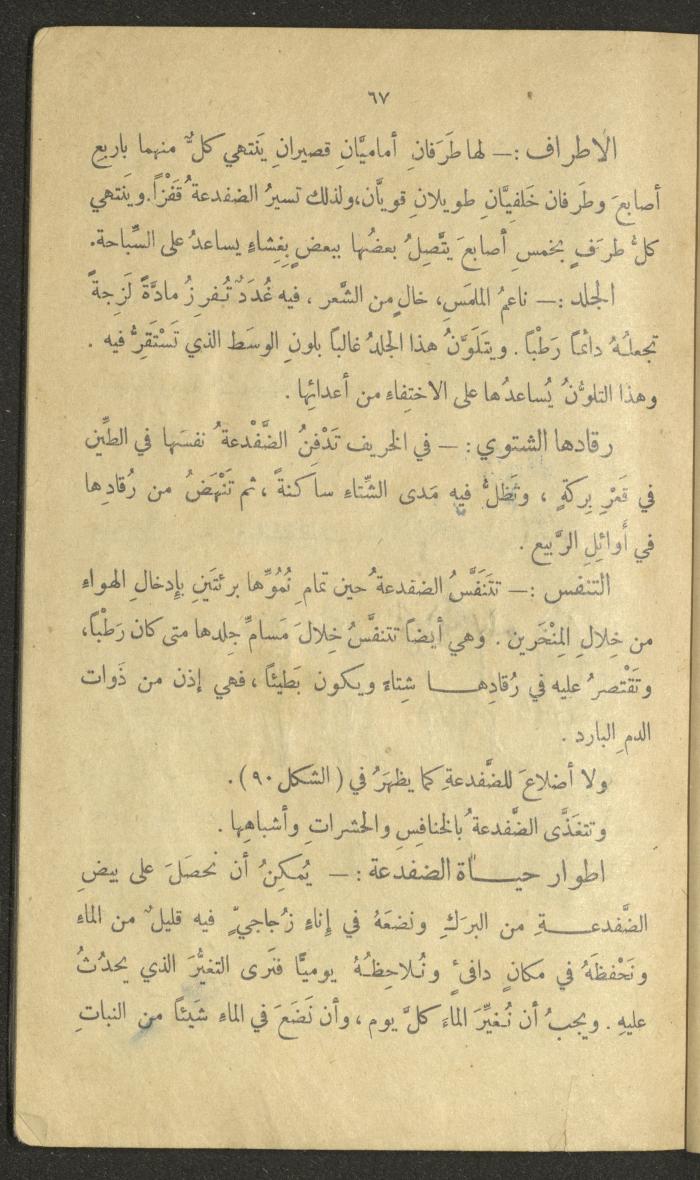 ٦٧
الاطراف :— لها طَرَفانِ أماميَّانِ قصيرانِ يَنتهي كلٌّ منهما باربعِ
أصابعَ وطَرفان خَلفيَّانِ طويلان قويَّان،ولذلك تسيرُ الضفدعةُ قَفْزاً.ويَنتهي
كلُّ طرَفٍ بخمسِ أصابعَ يتَّصِلُ بعضُها ببعضٍ بِغِشاءٍ يساعدُ على السِّباحة.
الجلد :— ناعمُ الملمَسِ، خالٍ من الشَّعر ، فيه غُدَدٌ تُفرِزُ مادَّةً لَزِجةً
تجعلُهُ دائماً رَطْباً . ويتَلَوَّنُ هذا الجلدُ غالباً بلونِ الوسَط الذي تَسْتَقِرُّ فيه .
وهذا التلوُّنُ يُساعدُها على الاختِفاءِ من أعدائِها .
رقادها الشتوي : — في الخريف تَدْفِنُ الضَّفْدعةُ نفسَها في الطِّين
في قَعْرِ بِركةٍ ، وتَظلُّ فيهِ مَدى الشِّتاءِ ساكنةً ، ثم تَنْهَضُ من رُقادِها
في أَوائِلِ الرَّبيع .
التنفس :— تتَنَفَّسُ الضفدعةُ حين تمامِ نُمُوِّها برئتَينِ بإِدخالِ الهواء
من خِلالِ المِنْخَرين . وهي أيضاً تتنفَّسُ خِلالَ مَسامِّ جِلدها متى كان رَطْباً،
وتَقْتصرُ عليه في رُقادِهـــا شِتاءً ويكون بَطيئاً ، فهي إذن من ذَوات
الدمِ البارد .
ولا أضلاعَ للضَّفدعةِ كما يظهَرُ في ( الشكل ٩٠ ) .
وتتغَذَّى الضَّفدعةُ بالخنافِسِ والحشراتِ وأشباهِها .
اطوار حيــاة الضفدعة : — يُمكِنُ أن نحصَلَ على بيضِ
الضَّفدعـــةِ من البرَكِ ونضعَهُ في إِناءٍ زُجاجيٍّ فيه قليلٌ من الماءِ
ونَحْفظَهُ في مكانٍ دافئٍ ونُلاحِظَهُ يوميًّا فنَرى التغيُّرَ الذي يحدُثُ
عليهِ . ويجبُ أن نُغيِّرَ الماءَ كلَّ يوم ، وأن نَضَعَ في الماءِ شَيئاً من النباتِ